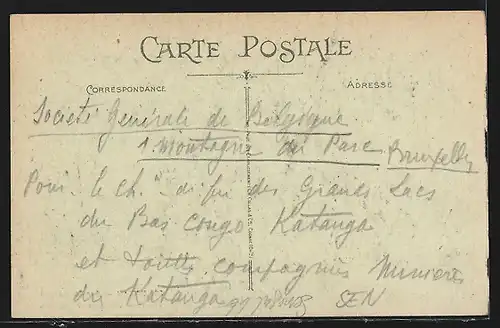 CARTE POSTALE
CORRESPONDANCE
ADRESSE
Société Générale de Belgique
1 Montagne du Parc Bruxelles
Pour le ch. de fer des Grands Lacs
du Bas Congo Katanga
et toutes compagnies Minières
du Katanga